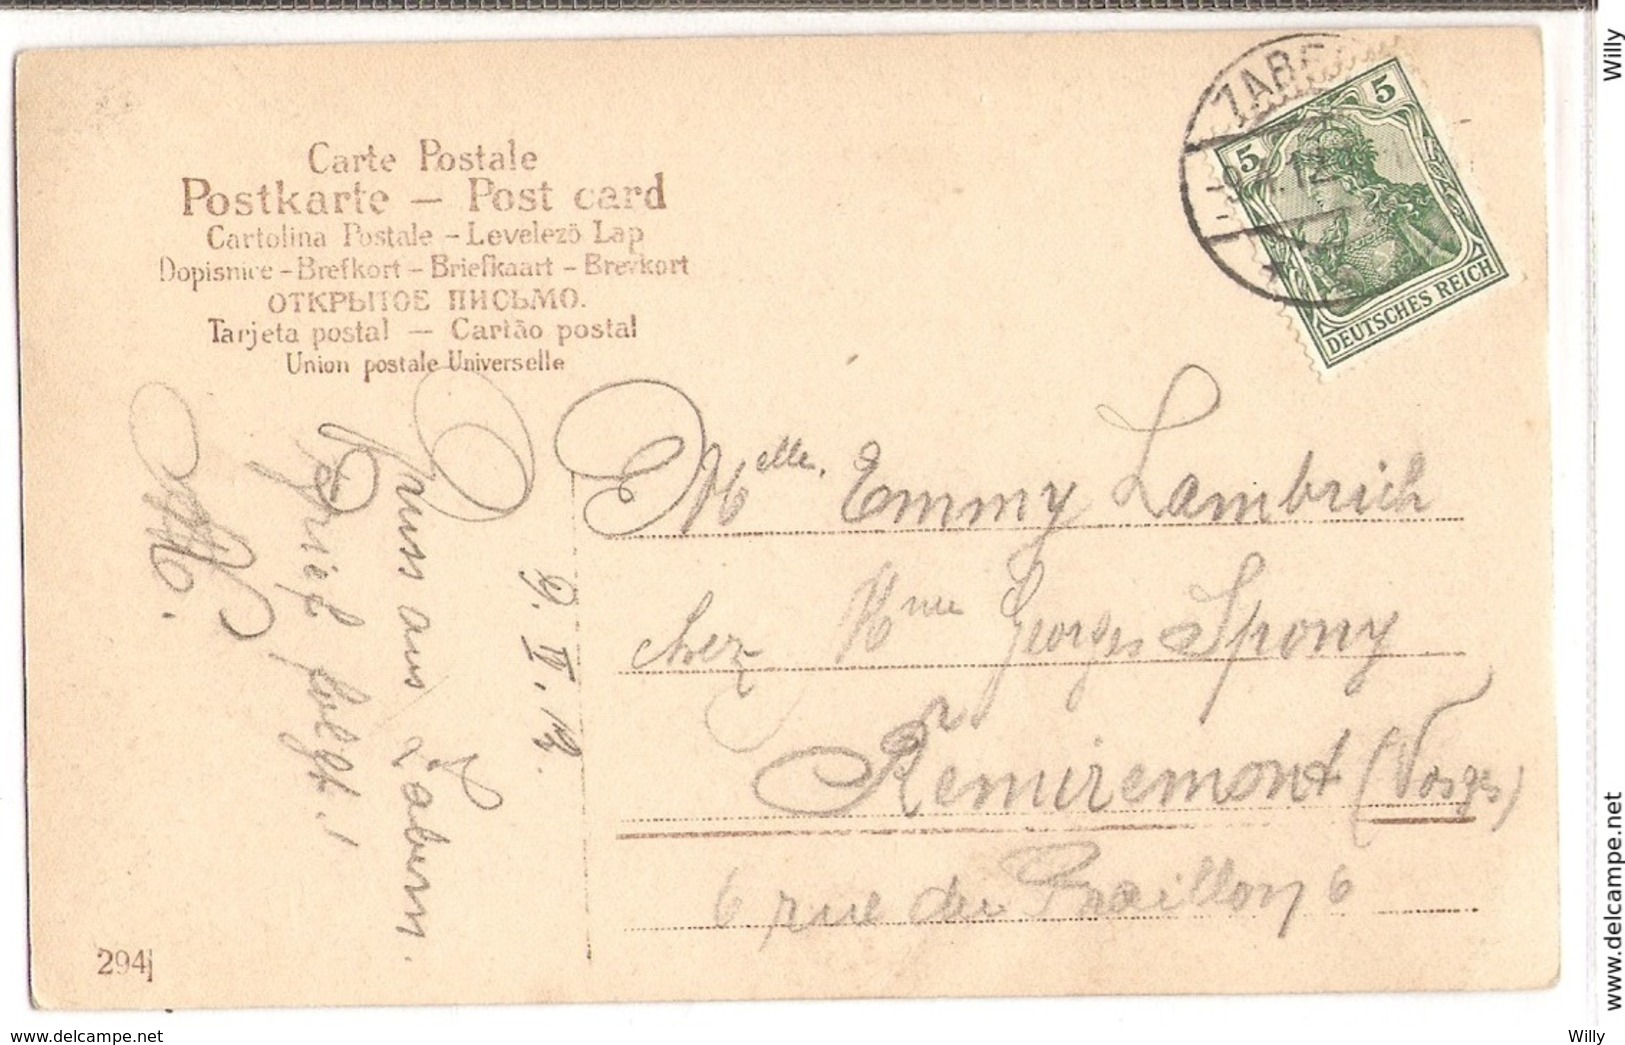 Carte Postale
Postkarte – Post card
Cartolina Postale – Levelezö Lap
Dopisnice – Brefkort – Briefkaart – Brevkort
ОТКРЫТОЕ ПИСЬМО.
Tarjeta postal — Cartão postal
Union postale Universelle
ZABE
9.4.12
5
5
DEUTSCHES REICH
9. IV. 12.
Gruss aus Zabern.
Brief folgt!
Melle. Emmy Lambrich
chez Mme Georges Spony
Remiremont (Vosges)
6 rue du 6
294
www.delcampe.net
Willy
www.delcampe.net
Willy